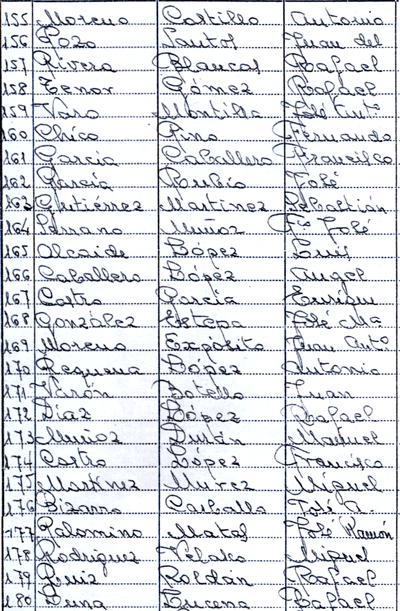 155 Moreno Castillo Antonio
156 Pozo Santos Juan del
157 Rivera Blancas Rafael
158 Tenor Gómez Rafael
159 Varo Montilla José Antº
160 Chico Pino Fernando
161 García Caballero Francisco
162 García Rubio José
163 Gutiérrez Martinez Sebastián
164 Serrano Muñoz Fco José
165 Alcaide López Luis
166 Caballero López Angel
167 Castro García Enrique
168 González Estepa José Mª
169 Moreno Expósito Juan Antº
170 Requena López Antonio
171 Varón Botello Juan
172 Díaz López Rafael
173 Muñoz Durán Manuel
174 Castro López Francisco
175 Martínez Miguel
176 Bizarro Carballo José A.
177 Palomino Matas José Ramón
178 Rodriguez Velasco Miguel
179 Ruiz Roldán Rafael
180 Luna Lucena Rafael